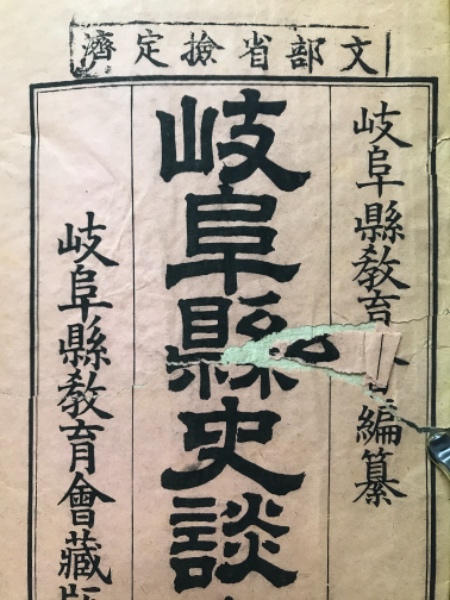 文部省撿定濟
岐阜縣教育會編纂
岐阜縣史談
岐阜縣教育會藏版